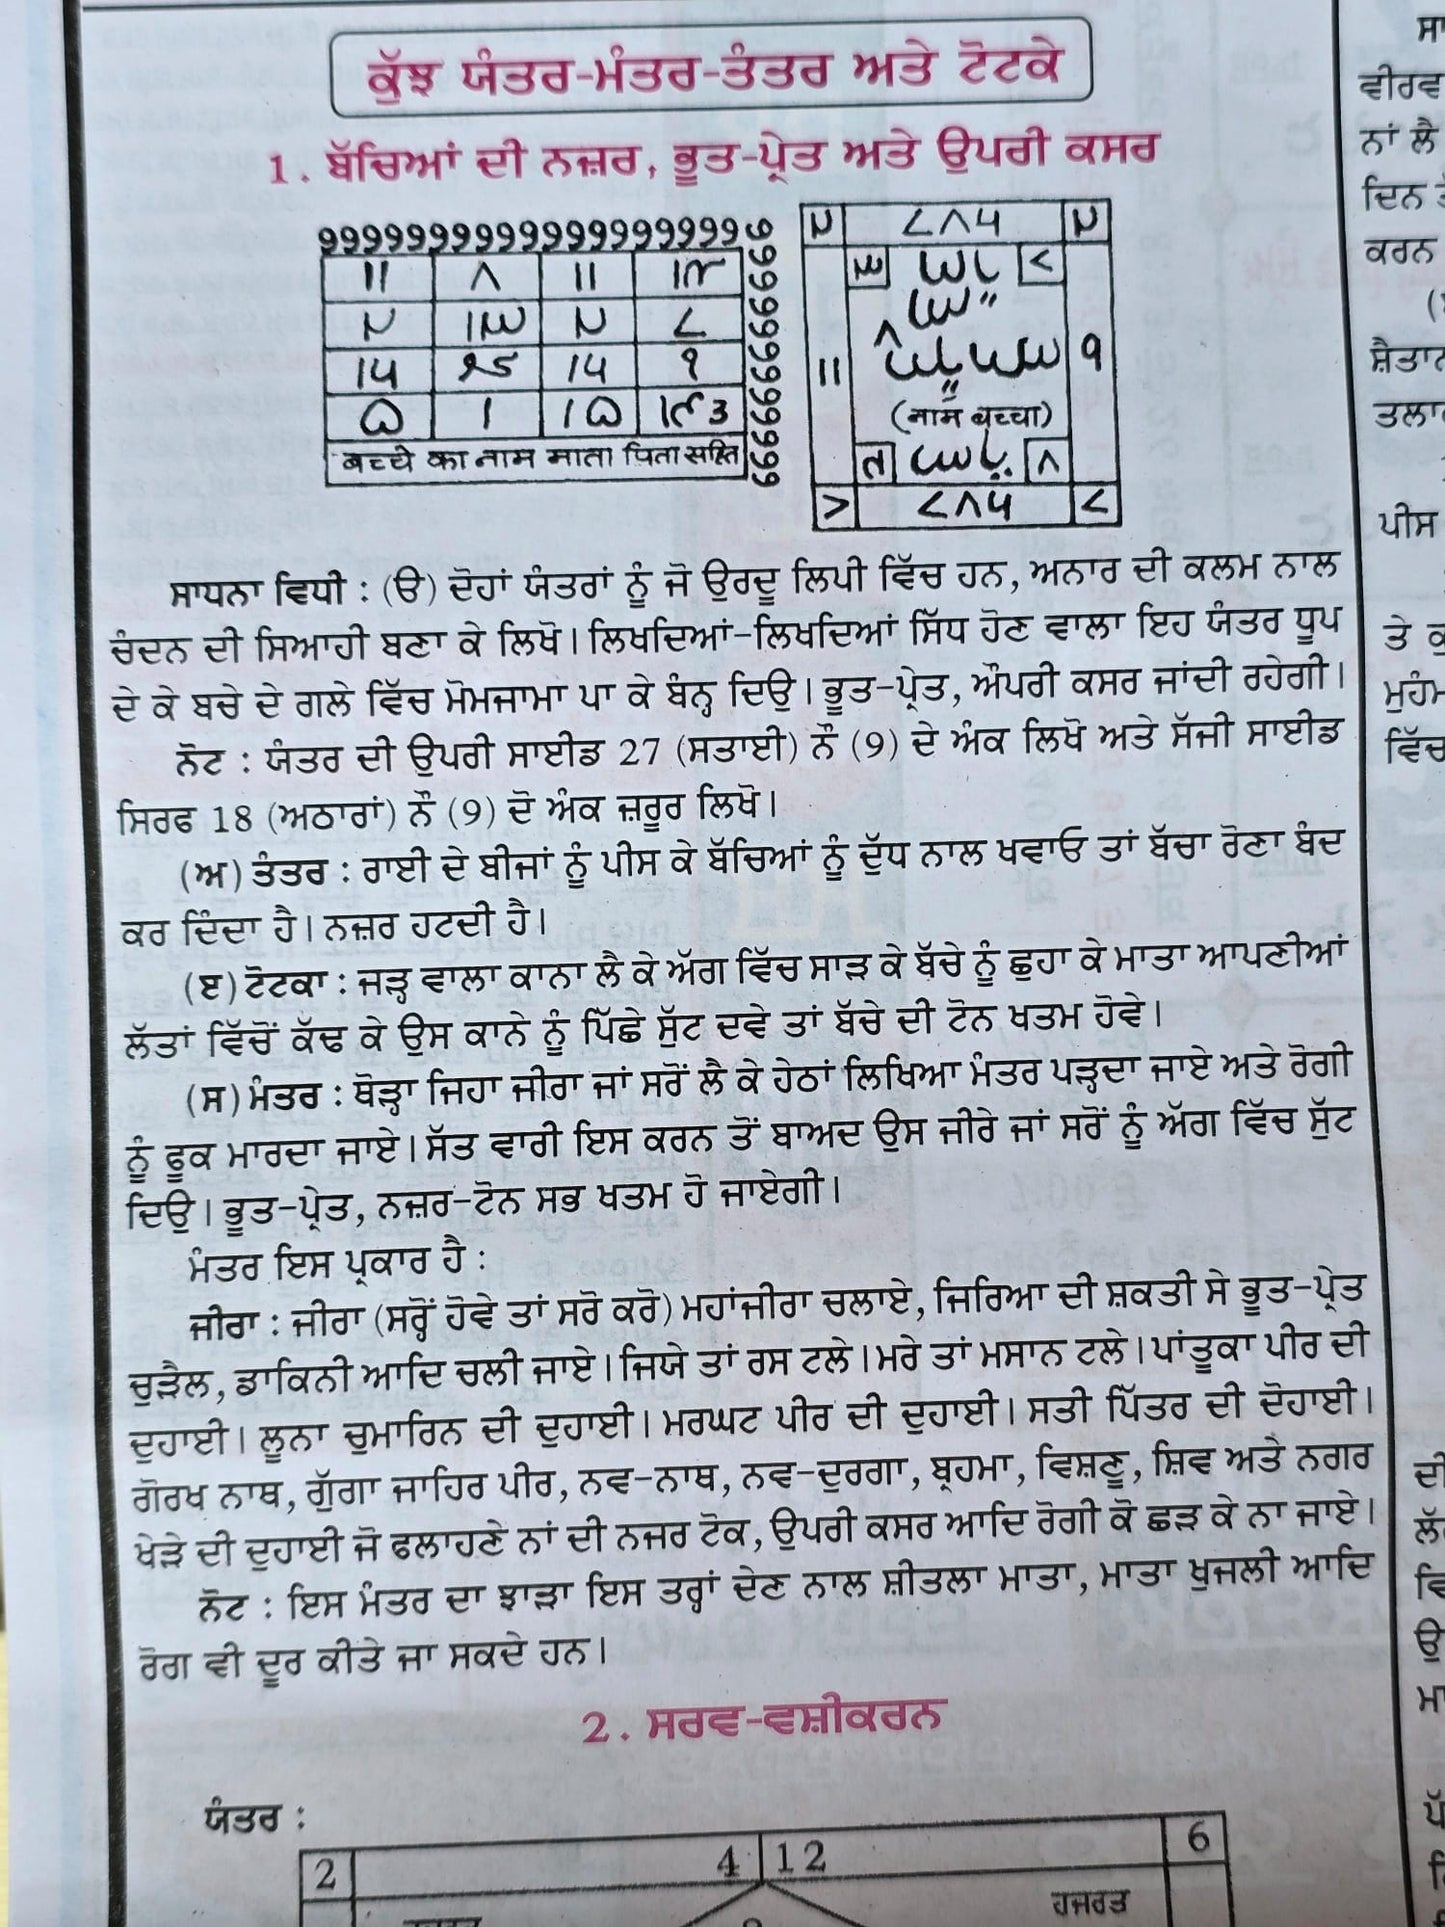 ਕੁੱਝ ਯੰਤਰ-ਮੰਤਰ-ਤੰਤਰ ਅਤੇ ਟੋਟਕੇ
1. ਬੱਚਿਆਂ ਦੀ ਨਜ਼ਰ, ਭੂਤ-ਪ੍ਰੇਤ ਅਤੇ ਉਪਰੀ ਕਸਰ
बच्चे का नाम माता पिता सहित
(नाम बच्चा)
ਸਾਧਨਾ ਵਿਧੀ : (ੳ) ਦੋਹਾਂ ਯੰਤਰਾਂ ਨੂੰ ਜੋ ਉਰਦੂ ਲਿਪੀ ਵਿੱਚ ਹਨ, ਅਨਾਰ ਦੀ ਕਲਮ ਨਾਲ
ਚੰਦਨ ਦੀ ਸਿਆਹੀ ਬਣਾ ਕੇ ਲਿਖੋ। ਲਿਖਦਿਆਂ-ਲਿਖਦਿਆਂ ਸਿੱਧ ਹੋਣ ਵਾਲਾ ਇਹ ਯੰਤਰ ਧੂਪ
ਦੇ ਕੇ ਬਚੇ ਦੇ ਗਲੇ ਵਿੱਚ ਮੋਮਜਾਮਾ ਪਾ ਕੇ ਬੰਨ੍ਹ ਦਿਉ। ਭੂਤ-ਪ੍ਰੇਤ, ਔਪਰੀ ਕਸਰ ਜਾਂਦੀ ਰਹੇਗੀ।
ਨੋਟ : ਯੰਤਰ ਦੀ ਉਪਰੀ ਸਾਈਡ 27 (ਸਤਾਈ) ਨੌਂ (9) ਦੇ ਅੰਕ ਲਿਖੋ ਅਤੇ ਸੱਜੀ ਸਾਈਡ
ਸਿਰਫ 18 (ਅਠਾਰਾਂ) ਨੌਂ (9) ਦੋ ਅੰਕ ਜ਼ਰੂਰ ਲਿਖੋ।
(ਅ) ਤੰਤਰ : ਰਾਈ ਦੇ ਬੀਜਾਂ ਨੂੰ ਪੀਸ ਕੇ ਬੱਚਿਆਂ ਨੂੰ ਦੁੱਧ ਨਾਲ ਖਵਾਓ ਤਾਂ ਬੱਚਾ ਰੋਣਾ ਬੰਦ
ਕਰ ਦਿੰਦਾ ਹੈ। ਨਜ਼ਰ ਹਟਦੀ ਹੈ।
(ੲ) ਟੋਟਕਾ : ਜੜ੍ਹ ਵਾਲਾ ਕਾਨਾ ਲੈ ਕੇ ਅੱਗ ਵਿੱਚ ਸਾੜ ਕੇ ਬੱਚੇ ਨੂੰ ਛੁਹਾ ਕੇ ਮਾਤਾ ਆਪਣੀਆਂ
ਲੱਤਾਂ ਵਿੱਚੋਂ ਕੱਢ ਕੇ ਉਸ ਕਾਨੇ ਨੂੰ ਪਿੱਛੇ ਸੁੱਟ ਦਵੇ ਤਾਂ ਬੱਚੇ ਦੀ ਟੋਨ ਖਤਮ ਹੋਵੇ।
(ਸ) ਮੰਤਰ : ਥੋੜ੍ਹਾ ਜਿਹਾ ਜੀਰਾ ਜਾਂ ਸਰੋਂ ਲੈ ਕੇ ਹੇਠਾਂ ਲਿਖਿਆ ਮੰਤਰ ਪੜ੍ਹਦਾ ਜਾਏ ਅਤੇ ਰੋਗੀ
ਨੂੰ ਫੂਕ ਮਾਰਦਾ ਜਾਏ। ਸੱਤ ਵਾਰੀ ਇਸ ਕਰਨ ਤੋਂ ਬਾਅਦ ਉਸ ਜੀਰੇ ਜਾਂ ਸਰੋਂ ਨੂੰ ਅੱਗ ਵਿੱਚ ਸੁੱਟ
ਦਿਉ। ਭੂਤ-ਪ੍ਰੇਤ, ਨਜ਼ਰ-ਟੋਨ ਸਭ ਖਤਮ ਹੋ ਜਾਏਗੀ।
ਮੰਤਰ ਇਸ ਪ੍ਰਕਾਰ ਹੈ :
ਜੀਰਾ : ਜੀਰਾ (ਸਰ੍ਹੋਂ ਹੋਵੇ ਤਾਂ ਸਰੋ ਕਰੋ) ਮਹਾਂਜੀਰਾ ਚਲਾਏ, ਜਿਰਿਆ ਦੀ ਸ਼ਕਤੀ ਸੇ ਭੂਤ-ਪ੍ਰੇਤ
ਚੁੜੈਲ, ਡਾਕਿਨੀ ਆਦਿ ਚਲੀ ਜਾਏ। ਜਿਯੇ ਤਾਂ ਰਸ ਟਲੇ। ਮਰੇ ਤਾਂ ਮਸਾਨ ਟਲੇ। ਪਾਂਤੂਕਾ ਪੀਰ ਦੀ
ਦੁਹਾਈ। ਲੂਨਾ ਚੁਮਾਰਿਨ ਦੀ ਦੁਹਾਈ। ਮਰਘਟ ਪੀਰ ਦੀ ਦੁਹਾਈ। ਸਤੀ ਪਿੱਤਰ ਦੀ ਦੋਹਾਈ।
ਗੋਰਖ ਨਾਥ, ਗੁੱਗਾ ਜਾਹਿਰ ਪੀਰ, ਨਵ-ਨਾਥ, ਨਵ-ਦੁਰਗਾ, ਬ੍ਰਹਮਾ, ਵਿਸ਼ਣੂ, ਸ਼ਿਵ ਅਤੇ ਨਗਰ
ਖੇੜੇ ਦੀ ਦੁਹਾਈ ਜੋ ਫਲਾਹਣੇ ਨਾਂ ਦੀ ਨਜਰ ਟੋਕ, ਉਪਰੀ ਕਸਰ ਆਦਿ ਰੋਗੀ ਕੋ ਛੜ ਕੇ ਨਾ ਜਾਏ।
ਨੋਟ : ਇਸ ਮੰਤਰ ਦਾ ਝਾੜਾ ਇਸ ਤਰ੍ਹਾਂ ਦੇਣ ਨਾਲ ਸ਼ੀਤਲਾ ਮਾਤਾ, ਮਾਤਾ ਖੁਜਲੀ ਆਦਿ
ਰੋਗ ਵੀ ਦੂਰ ਕੀਤੇ ਜਾ ਸਕਦੇ ਹਨ।
2. ਸਰਵ-ਵਸ਼ੀਕਰਨ
ਯੰਤਰ :
2 4 12 6
ਹਜਰਤ
ਵੀਰਵ
ਨਾਂ ਲੈ
ਦਿਨ
ਕਰਨ
ਸ਼ੈਤਾਨ
ਤਲਾ
ਪੀਸ
ਤੇ ਕੁ
ਮੁਹੰਮ
ਵਿੱਚ